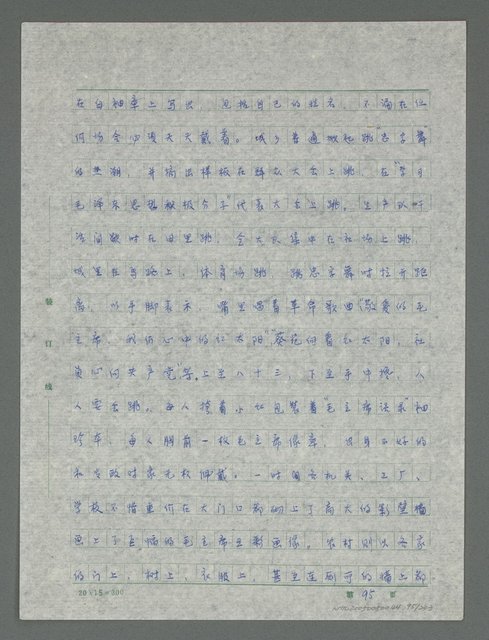 在白袖章上写出，包括自己的姓名，不论在任
何场合必须天天戴着。城乡普遍掀起跳“忠字舞”
的热潮，并搞出样板在群众大会上跳，在“学习
毛泽东思想积极分子”代表大会上跳。生产队干
活间歇时在田里跳，全大队集中在社场上跳，
城里在马路上，体育场跳 跳忠字舞时拉开距
离，以手脚表示，嘴里唱着革命歌曲“敬爱的毛
主席，我们心中的红太阳”“葵花向着红太阳，社
员心向共产党”等。上至八十三，下至手中搀，人
人要去跳。每人挎着小红包装着“毛主席语录”袖
珍本，每人胸前一枚毛主席像章，
一时国家机关、工厂、
学校不惜重价在大门口都砌上了高大的影壁墙
画上了巨幅的毛主席正彩画像。农村则从各家
的门上，树上，衣服上，甚至连厕所的墙上都
装订线
20×15=300
第 95 页